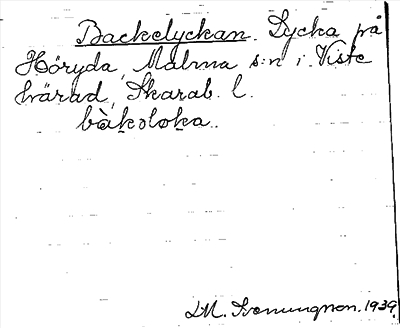 Backelyckan. Lycka på
Höryda, Malma s:n i Viste
härad, Skarab. l.
bàkoloka.
1939.